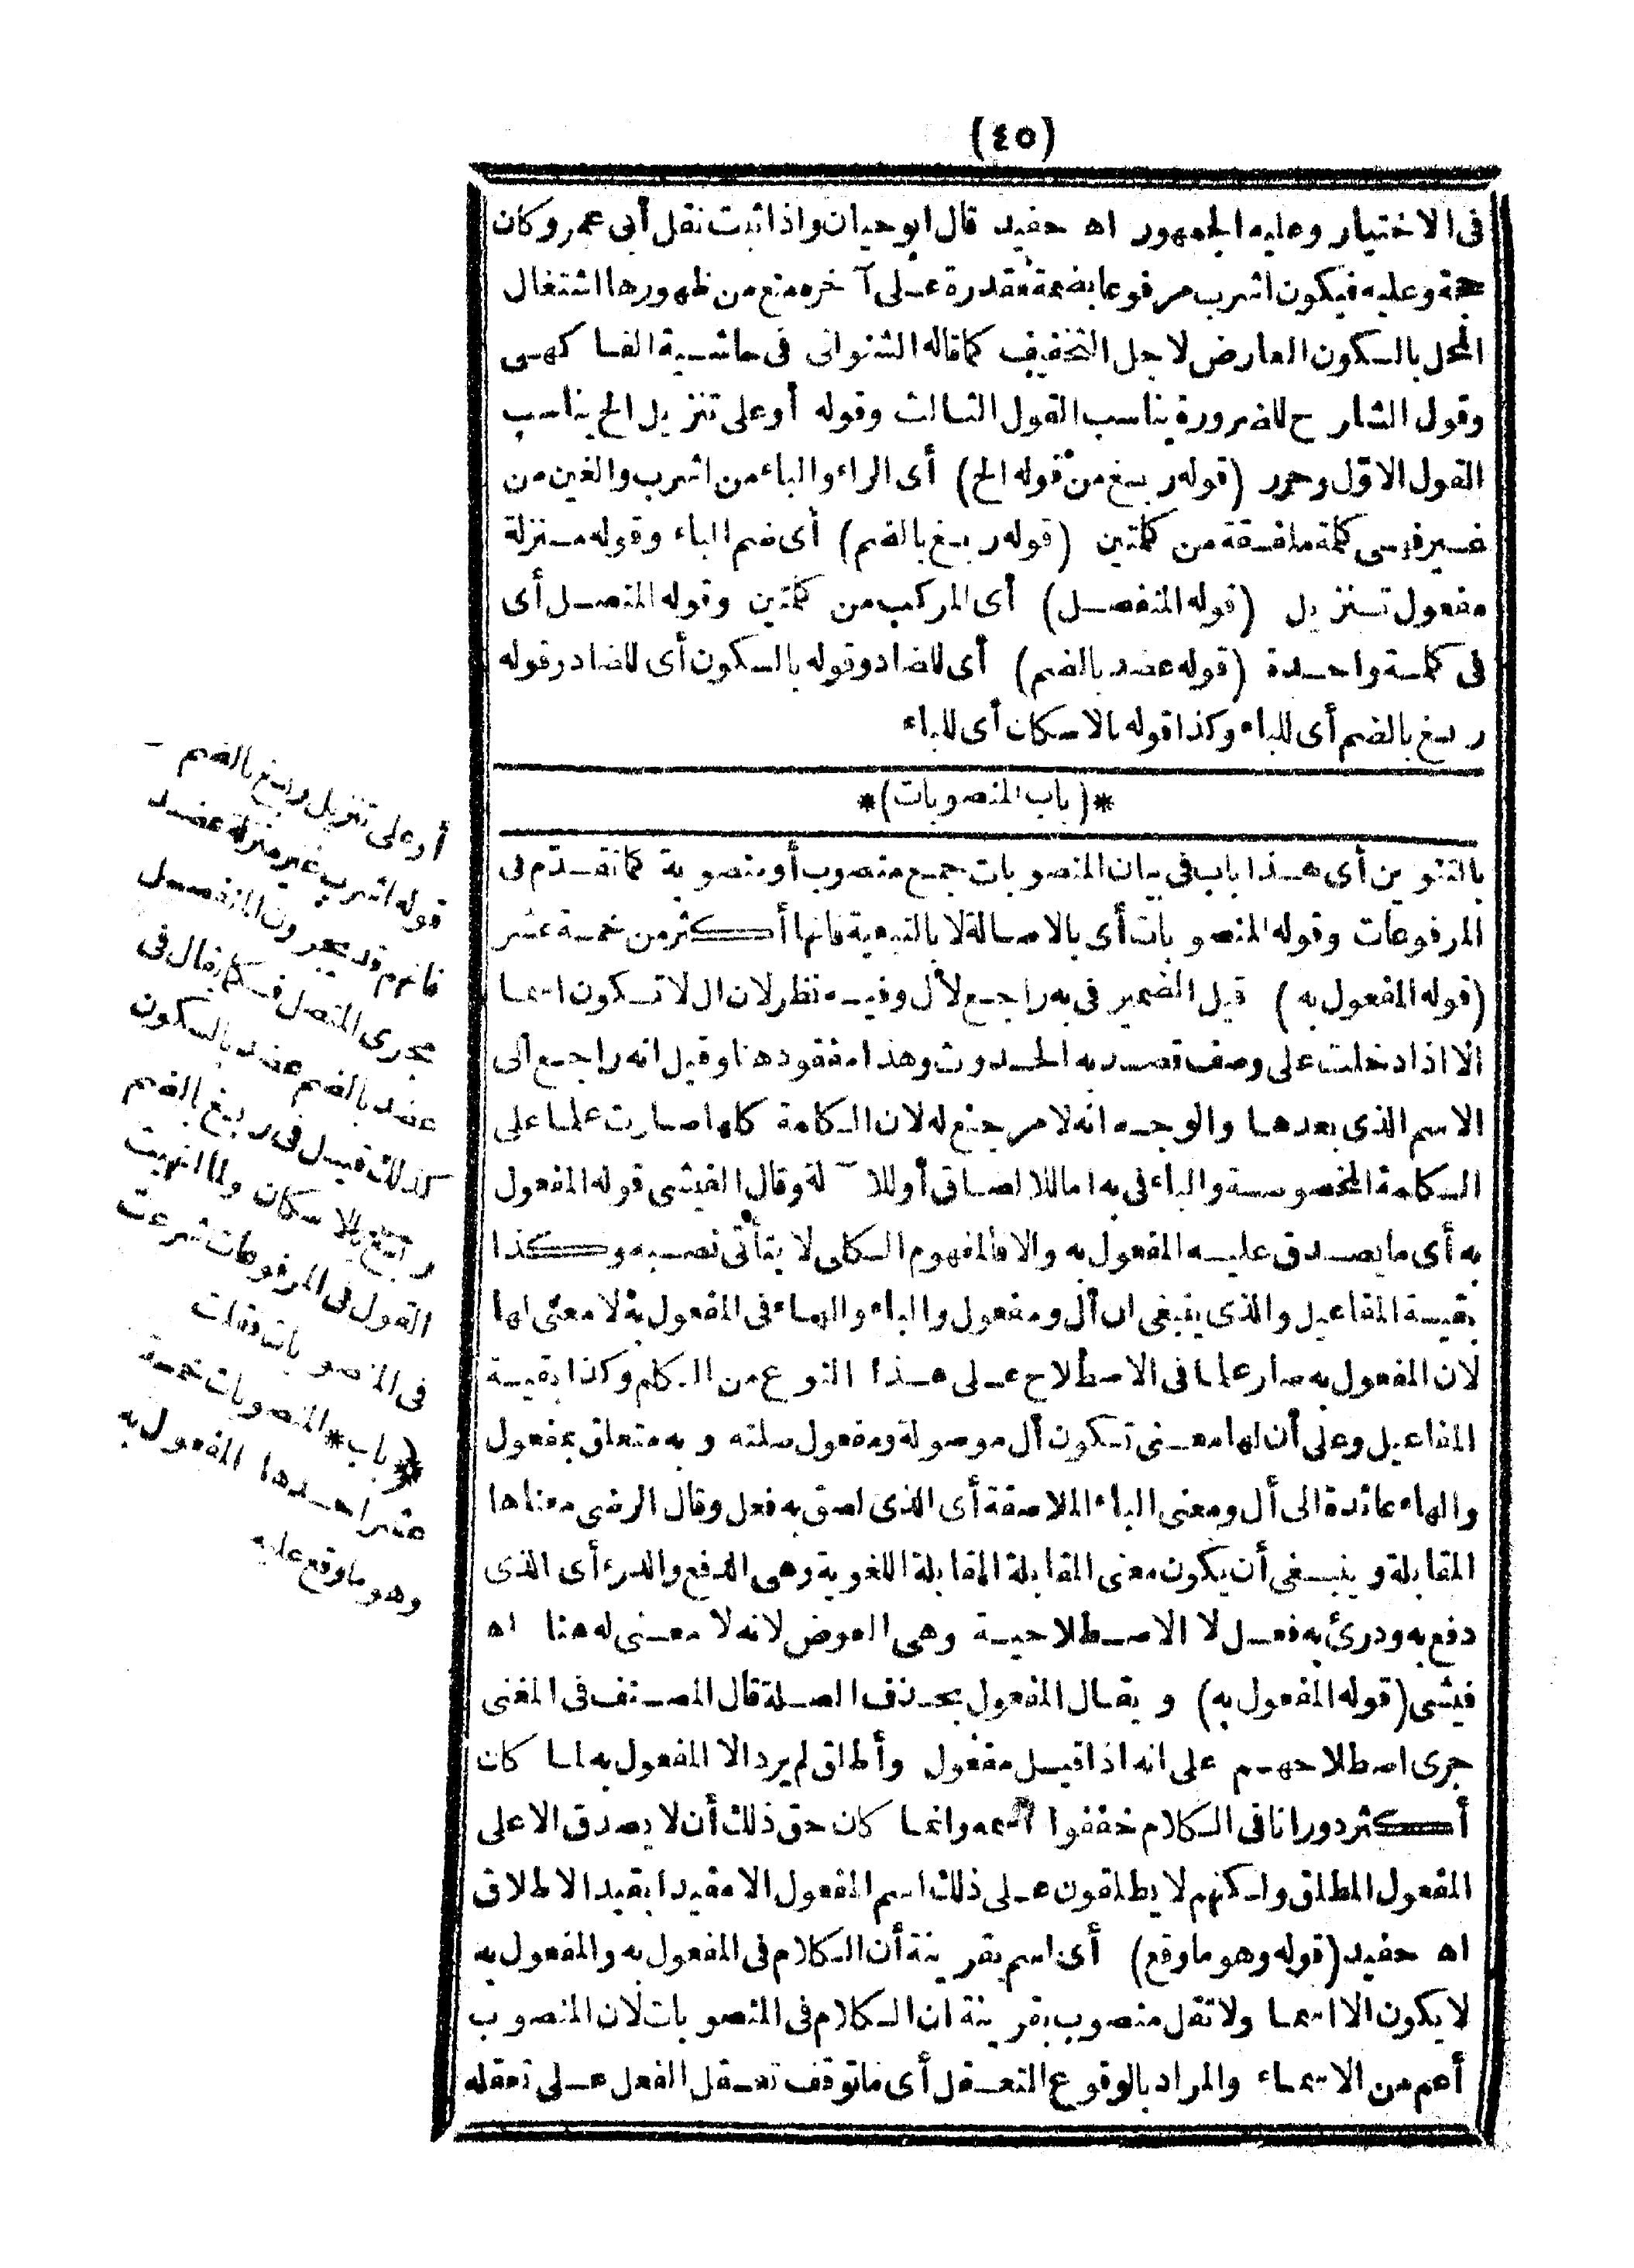 (٤٥)
فى الاختيار وعليه الجمهور اه حفيد قال ابو حيان واذا ثبت نقل أبى عمرو كان
حجة وعليه فيكون اشرب مرفوعا بضمة مقدرة على آخره منع من ظهورها اشتغال
المحل بالسكون العارض لاجل التخفيف كما قاله الشنوانى فى حاشية الفاكهى
وقول الشارح للضرورة يناسب القول الثالث وقوله أو على تنزيل الخ يناسب
القول الاوّل وحرر (قوله ربغ من قوله الخ) أى الراء والباء من اشرب والغين من
غير فهى كلمة ملفقة من كلمتين (قوله ربغ بالضم) أى ضم الباء وقوله منزلة
مفعول تنزيل (قوله المنفصل) أى المركب من كلمتين وقوله المتصل أى
فى كلمة واحدة (قوله عضد بالضم) أى للضاد وقوله بالسكون أى للضاد وقوله
ربغ بالضم أى للباء وكذا قوله بالاسكان أى للباء
*(باب المنصوبات)*
بالتنوين أى هذا باب فى بيان المنصوبات جمع منصوب أو منصوبة كما تقدّم فى
المرفوعات وقوله المنصوبات أى بالاصالة لا بالتبعية فانها أكثر من خمسة عشر
(قوله المفعول به) قيل الضمير فى به راجع لأل وفيه نظر لان ال لا تكون اسما
الا اذا دخلت على وصف قصد به الحدوث وهذا مفقود هنا وقيل انه راجع الى
الاسم الذى بعدها والوجه انه لا مرجع له لان الكلمة كلها صارت علما على
الكلمة المخصوصة والباء فى به اما للالصاق أو للآلة وقال الفيشى قوله المفعول
به أى ما يصدق عليه المفعول به والا فالمفهوم الكلى لا يتأتى نصبه وكذا
بقية المفاعيل والذى ينبغى ان أل ومفعول والباء والهاء فى المفعول به لا معنى لها
لان المفعول به صار علما فى الاصطلاح على هذا النوع من الكلم وكذا بقية
المفاعيل وعلى أن لها معنى تكون أل موصولة ومفعول صلته و به متعلق بمفعول
والهاء عائدة الى أل ومعنى الباء الملاصقة أى الذى لصق به فعل وقال الرضى معناها
المقابلة وينبغى أن يكون معنى المقابلة المقابلة اللغوية وهى الدفع والدرء أى الذى
دفع به ودرئ به فعل لا الاصطلاحية وهى العوض لانه لا معنى له هنا اه
فيشى (قوله المفعول به) ويقال المفعول بحذف الصلة قال المصنف فى المغنى
جرى اصطلاحهم على انه اذا قيل مفعول وأطلق لم يرد الا المفعول به لما كان
أكثر دورانا فى الكلام خففوا اسمه وانما كان حق ذلك أن لا يصدق الا على
المفعول المطلق ولكنهم لا يطلقون على ذلك اسم المفعول الا مقيدا بقيد الاطلاق
اه حفيد (قوله وهو ما وقع) أى اسم بقرينة أن الكلام فى المفعول به والمفعول به
لا يكون الا اسما ولا تقل منصوب بقرينة ان الكلام فى المنصوبات لان المنصوب
أعم من الاسماء والمراد بالوقوع التعقل أى ما توقف تعقل الفعل على تعقله
أو على تنزيل ربغ بالضم
قوله اشرب غير منزلة عضد
فانهم قد يجرون المنفصل
مجرى المتصل فكما يقال فى
عضد بالضم عضد بالسكون
كذلك قيل فى ربغ بالضم
ربغ بالاسكان ولما انهيت
القول فى المرفوعات شرعت
فى المنصوبات فقلت
*(باب * المنصوبات خمسة
عشر احدها المفعول به
وهو ما وقع عليه